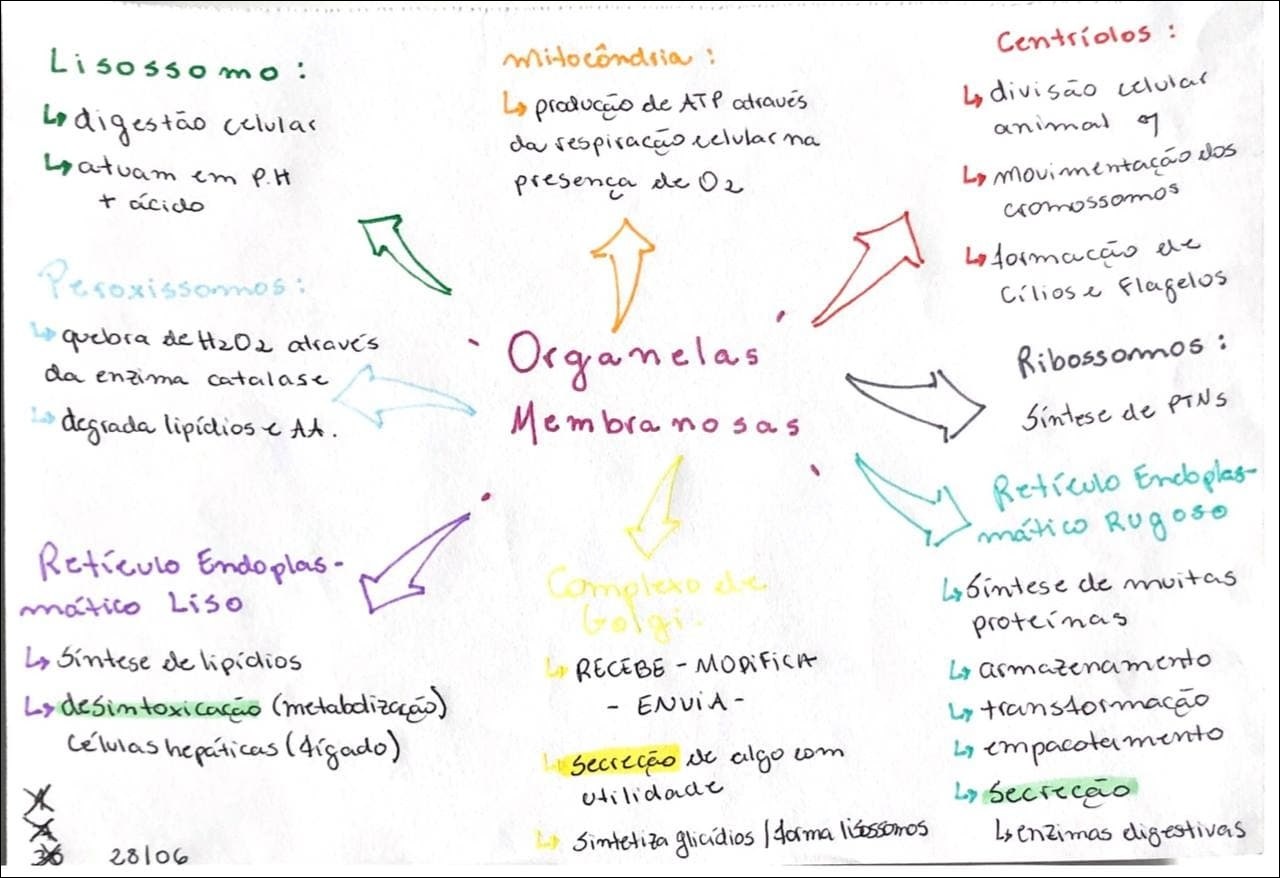 Lisossomo:
↳ digestão celular
↳ atuam em P.H
+ ácido
Mitocôndria:
↳ produção de ATP através
da respiração celular na
presença de O2
Centríolos:
↳ divisão celular
animal
↳ movimentação dos
cromossomos
↳ formacção de
Cílios e Flagelos
Peroxissomos:
↳ quebra de H2O2 através
da enzima catalase
↳ degrada lipídios e AA.
Organelas
Membranosas
Ribossomos:
Síntese de PTNs
Retículo Endoplas-
mático Rugoso
↳ Síntese de muitas
proteínas
↳ armazenamento
↳ transformação
↳ empacotamento
↳ Secreção
↳ enzimas digestivas
Retículo Endoplas-
mático Liso
↳ Síntese de lipídios
↳ desintoxicação (metabolização)
Células hepáticas (fígado)
Complexo de
Golgi.
↳ RECEBE - MODIFICA
- ENVIA -
↳ Secreção de algo com
utilidade
↳ Sintetiza glicídios / forma lisossomos
28/06